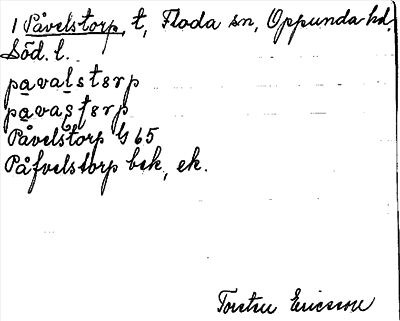 1 Påvelstorp, t, Floda sn, Oppunda hd,
Söd. l.
pavalstorp
pavastorp
Påvelstorp G 65
Påfvelstorp bsk, ek.
Torsten Ericsson